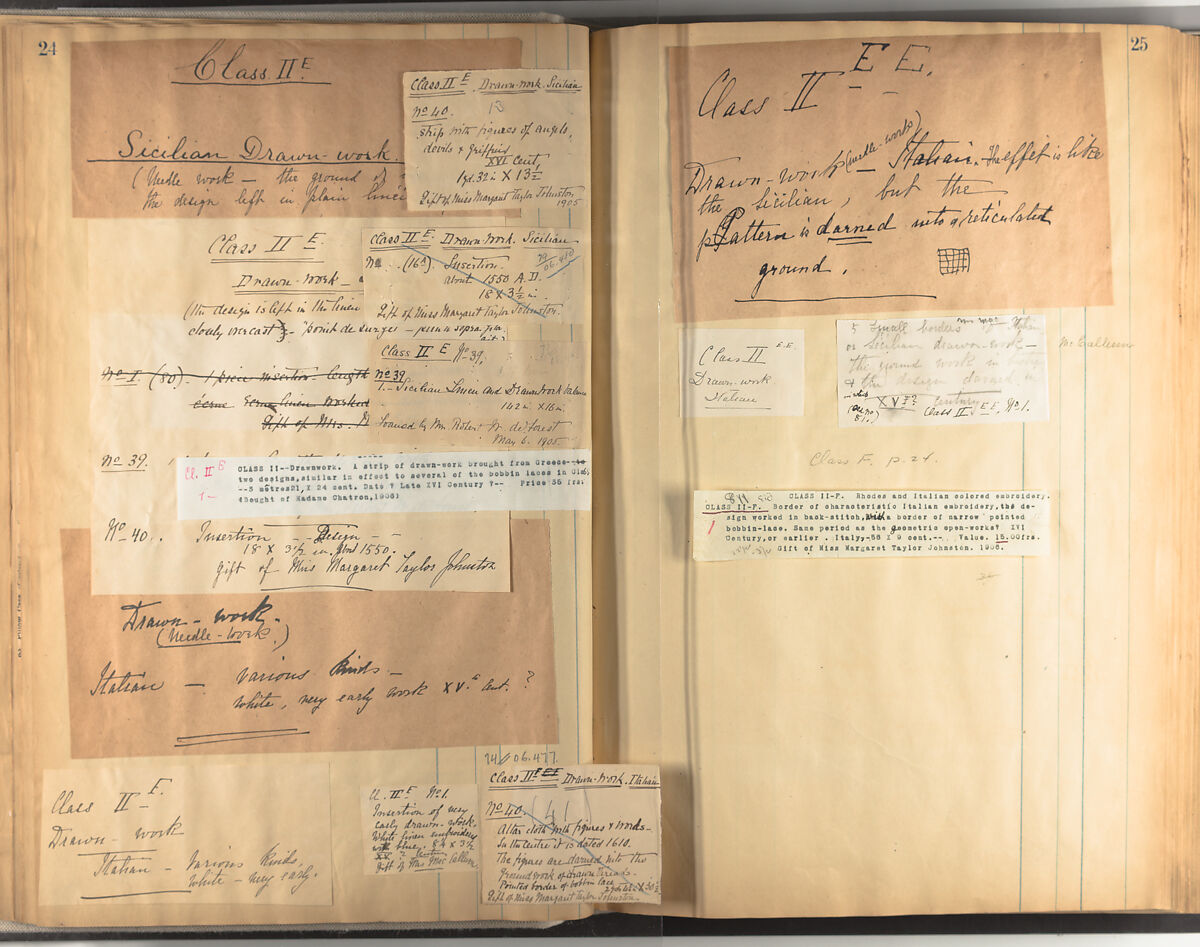 24
Class II E
Sicilian Drawn-work.
(Needle work — the ground of
the design left in plain linen
Class II E. Drawn-work. Sicilian
No 40. 13
Strip with figures of angels,
devils & griffins
XVI Cent.
1 yd. 32 in X 13½
Gift of Miss Margaret Taylor Johnston,
1905
Class II E.
Drawn-work —
(the design is left in the linen
closely overcast
Class II E. Drawn Work. Sicilian
No. (16A). Insertion.
about 1550 A.D.
18 X 3½ in.
Gift of Miss Margaret Taylor Johnston.
Class II E No 39.
No 39
1. - Sicilian Linen and Drawn Work Valance
142 in. X 16 in.
Loaned by Mr. Robert W. de Forest
May 6. 1905
No 1. (80). 1 piece insertion - length
écrue linen worked
Gift of Mrs.
No 39.
Cl. II E
1 —
CLASS II--Drawnwork. A strip of drawn-work brought from Greece--
two designs,similar in effect to several of the bobbin laces in
--3 metres21,X 24 cent. Date ? Late XVI Century ?-- Price 55 frs.
(Bought of Madame Chatron,1906)
No 40. Insertion - Design -
18 X 3½ in. abt 1550.
Gift of Miss Margaret Taylor Johnston
Drawn-work.
(Needle-work.)
Italian — various kinds —
White, very early work XVth Cent. ?
Class II E.
Drawn-work
Italian - Various kinds.
White - very early.
Cl. II E No 1.
Insertion of very
early drawn-work.
White linen embroidery
with blue. 84 X 3½
XV ? Century
Gift of Mrs Mac Callum
06.477.
Class II E EE Drawn-Work. Italian
No 40. (41
Altar cloth with figures & words —
In the centre it is dated 1610.
The figures are darned into the
groundwork of drawn threads.
Pointed border of bobbin lace
Gift of Miss Margaret Taylor Johnston.
25
Class II E E.
Drawn-work (needle-work) — Italian. The effet is like
the Sicilian, but the
pattern is darned into a reticulated
ground.
Class II EE.
Drawn-work
Italian
5 Small borders of Italian
or Sicilian drawn-work —
the ground work in
& the design darned in
XV ? Century
Class II EE, No 1.
Mc Callum
Class F. p. 24.
CLASS II-F. Rhodes and Italian colored embroidery.
CLASS II-F. Border of characteristic Italian embroidery,the de-
1
sign worked in back-stitch, with a border of narrow pointed
bobbin-lace. Same period as the geometric open-works? XVI
Century,or earlier . Italy,-58 X 9 cent.--. Value. 15.00frs.
Gift of Miss Margaret Taylor Johnston. 1906.